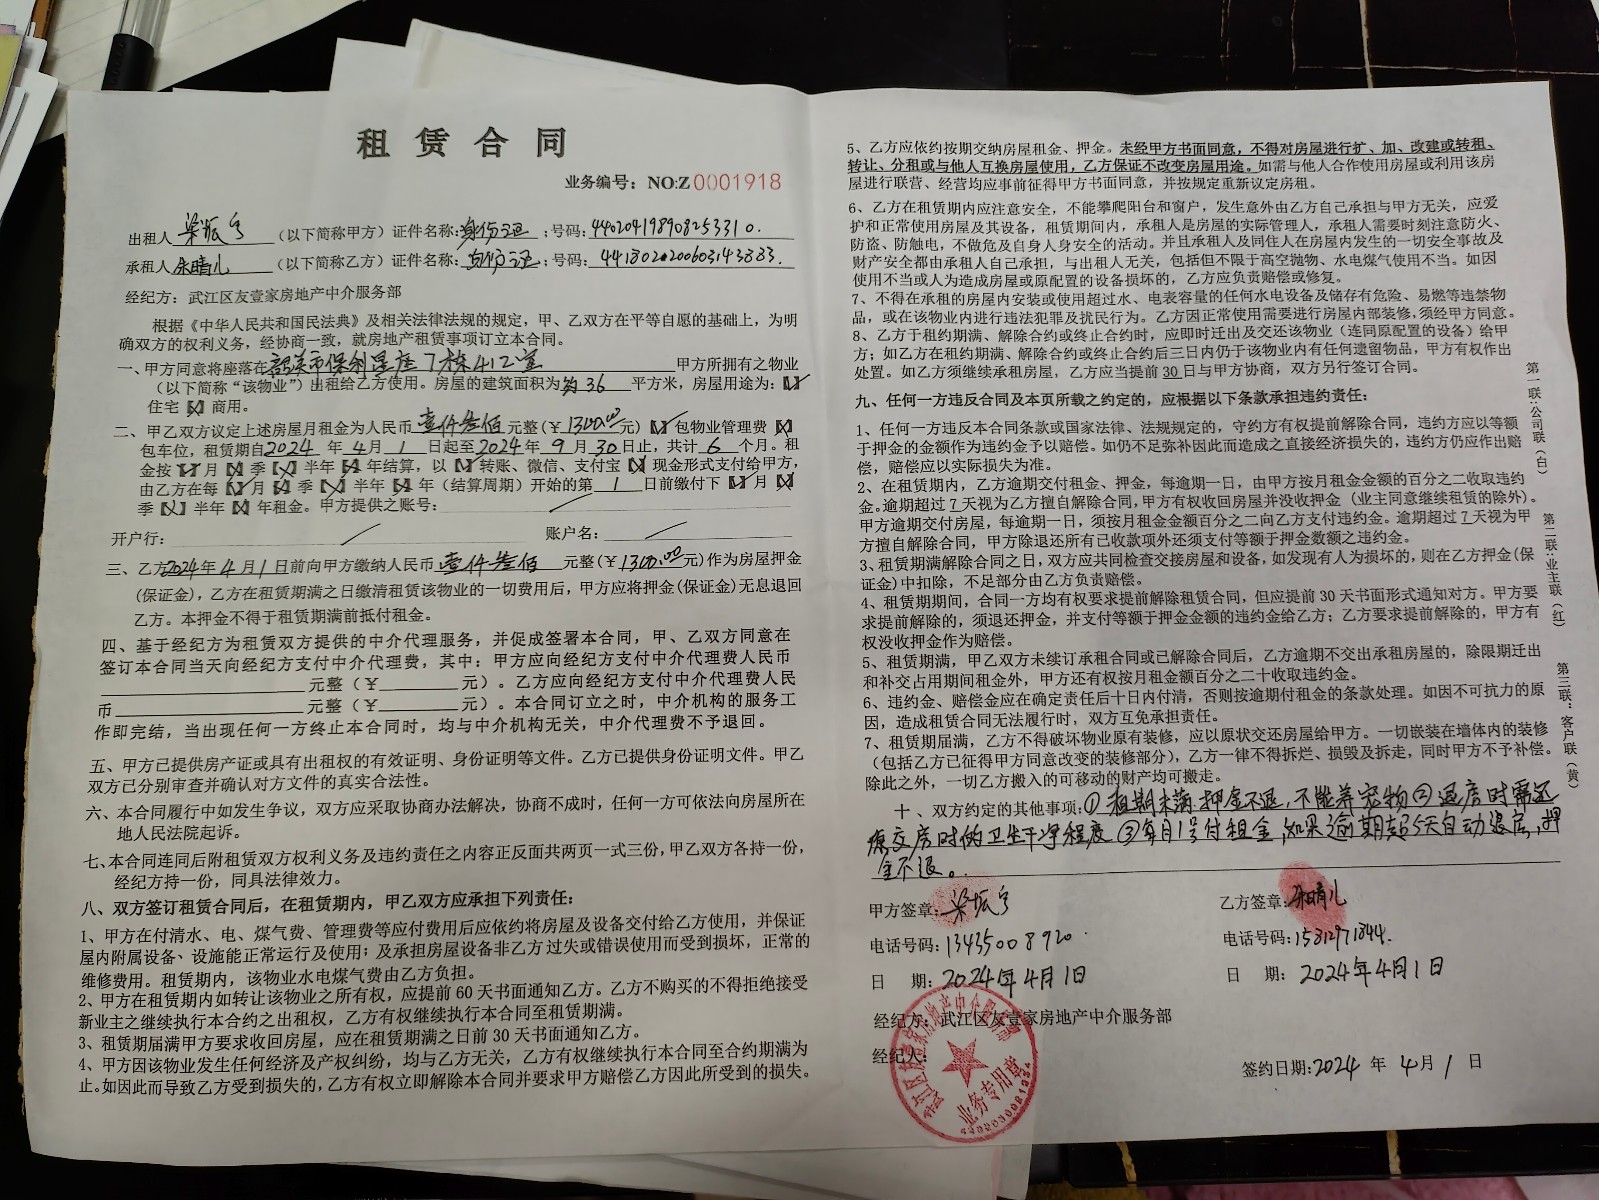 租 赁 合 同
业务编号：NO:Z0001918
出租人 梁振宇 （以下简称甲方）证件名称：身份证；号码：440204198908253310.
承租人 朱晴儿 （以下简称乙方）证件名称：身份证；号码：441802020060314383.
经纪方：武江区友壹家房地产中介服务部
根据《中华人民共和国民法典》及相关法律法规的规定，甲、乙双方在平等自愿的基础上，为明
确双方的权利义务，经协商一致，就房地产租赁事项订立本合同。
一、甲方同意将座落在韶关市保利星座7栋412室 甲方所拥有之物业
（以下简称“该物业”）出租给乙方使用。房屋的建筑面积为约36 平方米，房屋用途为：【✓】
住宅【×】商用。
二、甲乙双方议定上述房屋月租金为人民币 壹仟叁佰 元整（￥1300.00元）【✓】包物业管理费【×】
包车位，租赁期自2024 年 4 月 1 日起至2024 年 9 月 30 日止，共计 6 个月。租
金按【✓】月【×】季【×】半年【×】年结算，以【✓】转账、微信、支付宝【×】现金形式支付给甲方，
由乙方在每【✓】月【×】季【×】半年【×】年（结算周期）开始的第 1 日前缴付下【✓】月【×】
季【×】半年【×】年租金。甲方提供之账号：
开户行： 账户名：
三、乙方2024年4月1日前向甲方缴纳人民币 壹仟叁佰 元整（￥1300.00元）作为房屋押金
（保证金），乙方在租赁期满之日缴清租赁该物业的一切费用后，甲方应将押金（保证金）无息退回
乙方。本押金不得于租赁期满前抵付租金。
四、基于经纪方为租赁双方提供的中介代理服务，并促成签署本合同，甲、乙双方同意在
签订本合同当天向经纪方支付中介代理费，其中：甲方应向经纪方支付中介代理费人民币
元整（￥ 元）。乙方应向经纪方支付中介代理费人民
币 元整（￥ 元）。本合同订立之时，中介机构的服务工
作即完结，当出现任何一方终止本合同时，均与中介机构无关，中介代理费不予退回。
五、甲方已提供房产证或具有出租权的有效证明、身份证明等文件。乙方已提供身份证明文件。甲乙
双方已分别审查并确认对方文件的真实合法性。
六、本合同履行中如发生争议，双方应采取协商办法解决，协商不成时，任何一方可依法向房屋所在
地人民法院起诉。
七、本合同连同后附租赁双方权利义务及违约责任之内容正反面共两页一式三份，甲乙双方各持一份，
经纪方持一份，同具法律效力。
八、双方签订租赁合同后，在租赁期内，甲乙双方应承担下列责任：
1、甲方在付清水、电、煤气费、管理费等应付费用后应依约将房屋及设备交付给乙方使用，并保证
屋内附属设备、设施能正常运行及使用；及承担房屋设备非乙方过失或错误使用而受到损坏，正常的
维修费用。租赁期内，该物业水电煤气费由乙方负担。
2、甲方在租赁期内如转让该物业之所有权，应提前 60 天书面通知乙方。乙方不购买的不得拒绝接受
新业主之继续执行本合约之出租权，乙方有权继续执行本合同至租赁期满。
3、租赁期届满甲方要求收回房屋，应在租赁期满之日前 30 天书面通知乙方。
4、甲方因该物业发生任何经济及产权纠纷，均与乙方无关，乙方有权继续执行本合同至合约期满为
止。如因此而导致乙方受到损失的，乙方有权立即解除本合同并要求甲方赔偿乙方因此所受到的损失。
5、乙方应依约按期交纳房屋租金、押金。未经甲方书面同意，不得对房屋进行扩、加、改建或转租、
转让、分租或与他人互换房屋使用，乙方保证不改变房屋用途。如需与他人合作使用房屋或利用该房
屋进行联营、经营均应事前征得甲方书面同意，并按规定重新议定房租。
6、乙方在租赁期内应注意安全，不能攀爬阳台和窗户，发生意外由乙方自己承担与甲方无关，应爱
护和正常使用房屋及其设备，租赁期间内，承租人是房屋的实际管理人，承租人需要时刻注意防火、
防盗、防触电，不做危及自身人身安全的活动。并且承租人及同住人在房屋内发生的一切安全事故及
财产安全都由承租人自己承担，与出租人无关，包括但不限于高空抛物、水电煤气使用不当。如因
使用不当或人为造成房屋或原配置的设备损坏的，乙方应负责赔偿或修复。
7、不得在承租的房屋内安装或使用超过水、电表容量的任何水电设备及储存有危险、易燃等违禁物
品，或在该物业内进行违法犯罪及扰民行为。乙方因正常使用需要进行房屋内部装修，须经甲方同意。
8、乙方于租约期满、解除合约或终止合约时，应即时迁出及交还该物业（连同原配置的设备）给甲
方；如乙方在租约期满、解除合约或终止合约后三日内仍于该物业内有任何遗留物品，甲方有权作出
处置。如乙方须继续承租房屋，乙方应当提前 30 日与甲方协商，双方另行签订合同。
九、任何一方违反合同及本页所载之约定的，应根据以下条款承担违约责任：
1、任何一方违反本合同条款或国家法律、法规规定的，守约方有权提前解除合同，违约方应以等额
于押金的金额作为违约金予以赔偿。如仍不足弥补因此而造成之直接经济损失的，违约方仍应作出赔
偿，赔偿应以实际损失为准。
2、在租赁期内，乙方逾期交付租金、押金，每逾期一日，由甲方按月租金金额的百分之二收取违约
金。逾期超过 7 天视为乙方擅自解除合同，甲方有权收回房屋并没收押金（业主同意继续租赁的除外）。
甲方逾期交付房屋，每逾期一日，须按月租金金额百分之二向乙方支付违约金。逾期超过 7 天视为甲
方擅自解除合同，甲方除退还所有已收款项外还须支付等额于押金数额之违约金。
3、租赁期满解除合同之日，双方应共同检查交接房屋和设备，如发现有人为损坏的，则在乙方押金（保
证金）中扣除，不足部分由乙方负责赔偿。
4、租赁期期间，合同一方均有权要求提前解除租赁合同，但应提前 30 天书面形式通知对方。甲方要
求提前解除的，须退还押金，并支付等额于押金金额的违约金给乙方；乙方要求提前解除的，甲方有
权没收押金作为赔偿。
5、租赁期满，甲乙双方未续订承租合同或已解除合同后，乙方逾期不交出承租房屋的，除限期迁出
和补交占用期间租金外，甲方还有权按月租金额百分之二十收取违约金。
6、违约金、赔偿金应在确定责任后十日内付清，否则按逾期付租金的条款处理。如因不可抗力的原
因，造成租赁合同无法履行时，双方互免承担责任。
7、租赁期届满，乙方不得破坏物业原有装修，应以原状交还房屋给甲方。一切嵌装在墙体内的装修
（包括乙方已征得甲方同意改变的装修部分），乙方一律不得拆烂、损毁及拆走，同时甲方不予补偿。
除此之外，一切乙方搬入的可移动的财产均可搬走。
十、双方约定的其他事项：①租期未满押金不退，不能养宠物②退房时需还
原交房时的卫生干净程度③每月1号付租金，如果逾期超5天自动退房，押
金不退。
甲方签章：梁振宇 乙方签章：朱晴儿
电话号码：13435008920 电话号码：15812971844.
日 期：2024年4月1日 日 期：2024年4月1日
经纪方：武江区友壹家房地产中介服务部
经纪人：
签约日期：2024 年 4 月 1 日
武江区友壹家房地产中介服务部
业务专用章
第一联：公司联（白）
第二联：业主联（红）
第三联：客户联（黄）